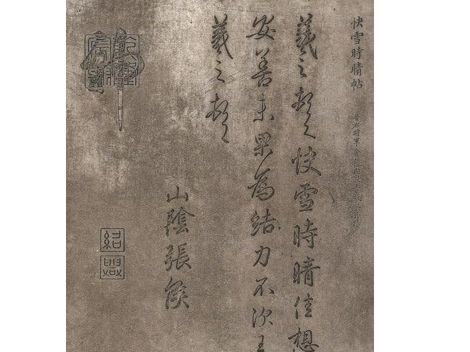 快雪時晴帖
羲之頓首快雪時晴佳想
安善未果為結力不次王
羲之頓首
山陰張侯
紹興